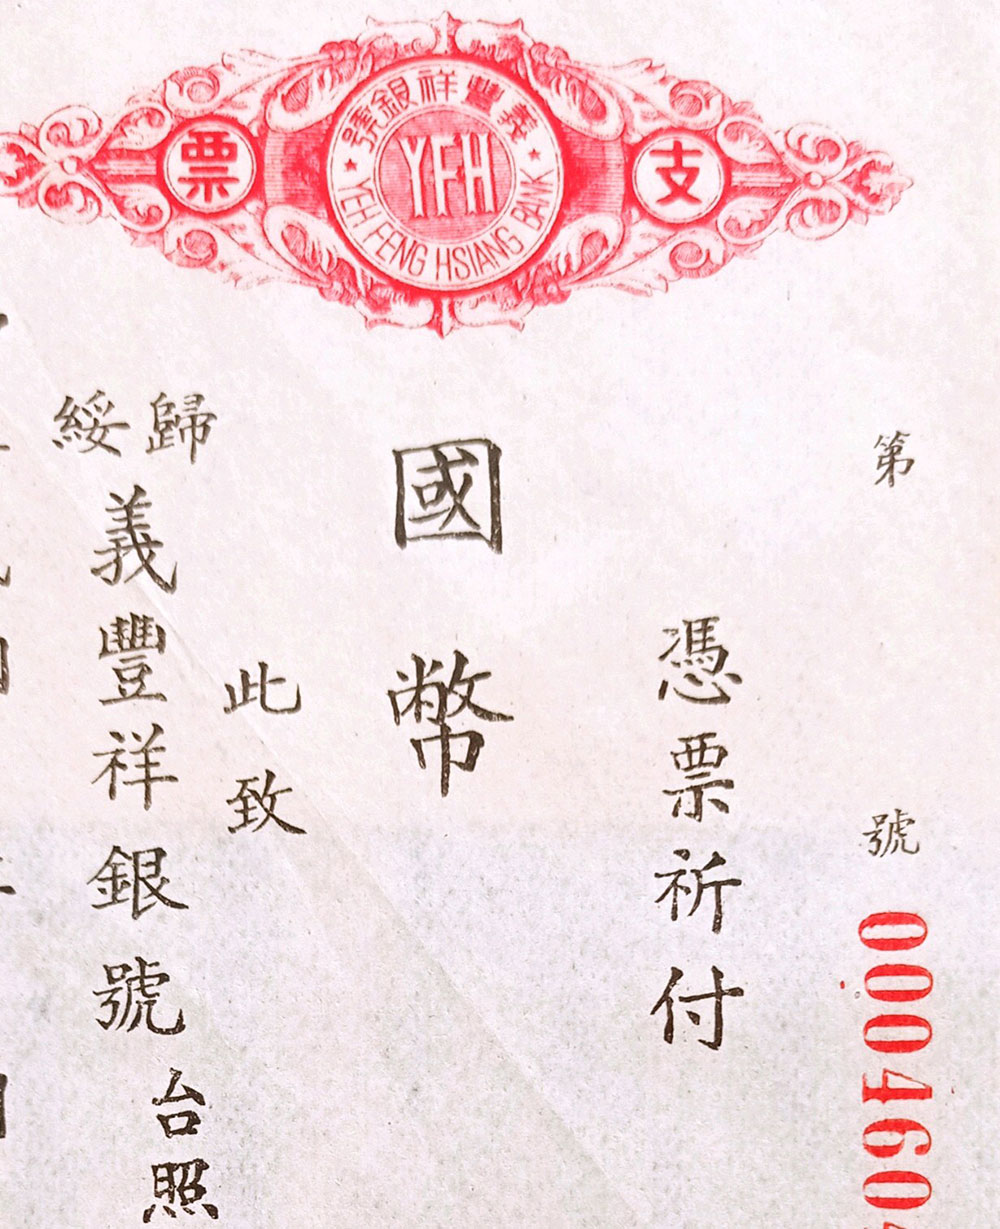 支票
義豐祥銀號
YFH
YEH FENG HSIANG BANK
第 號 000460
憑票祈付
國幣
此致
歸綏
義豐祥銀號
台照